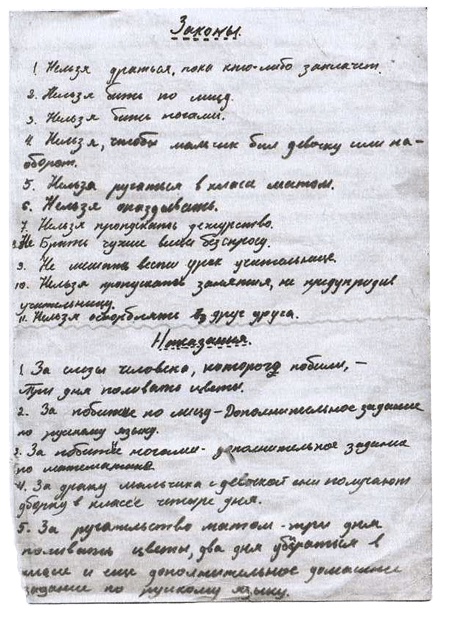 Законы.
1. Нельзя драться, пока кто-либо заплачет.
2. Нельзя бить по лицу.
3. Нельзя бить ногами.
4. Нельзя, чтобы мальчик бил девочку или на-
оборот.
5. Нельзя ругаться в класе матом.
6. Нельзя опаздывать.
7. Нельзя пропускать дежурство.
8. Не брать чужие вещи без спросу.
9. Не мешать вести урок учительнице.
10. Нельзя пропускать занятия, не предупредив
учительницу.
11. Нельзя оскорблять друг друга.
Наказания.
1. За слёзы человека, которого побили, –
Три дня поливать цветы.
2. За побитие по лицу – Дополнительное задание
по рускому языку.
3. За побитие ногами – дополнительное задание
по математике
4. За драку мальчика с девочкой они получают
уборку в классе четыре дня.
5. За ругательство матом – три дня
поливать цветы, два дня убераться в
класе и дополнительное домашнее
задание по рускому языку.